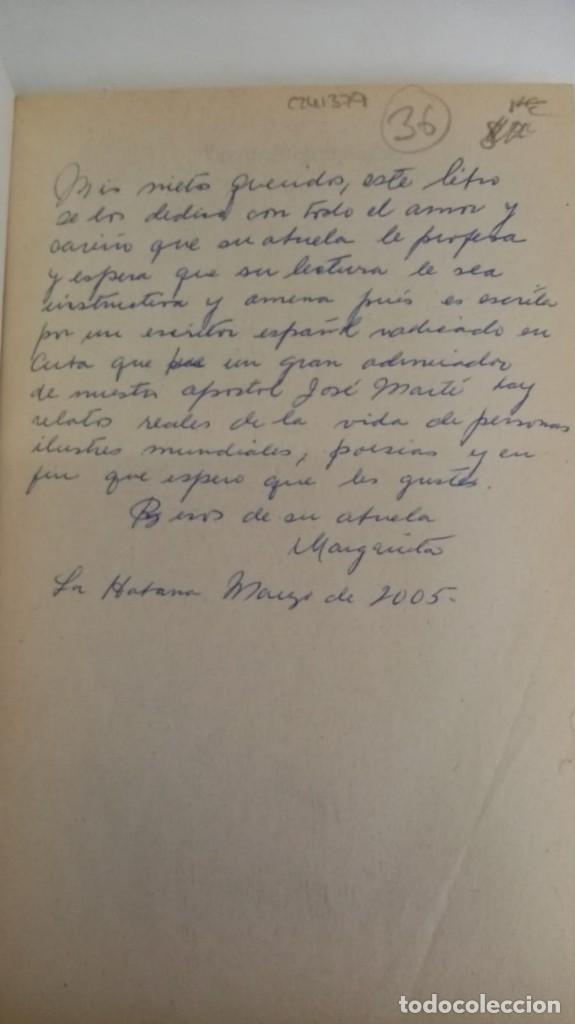 C241379
36
Mis nietos queridos, este libro
se los dedica con todo el amor y
cariño que su abuela le profesa
y espera que su lectura le sea
instructiva y amena pués es escrita
por un escritor español radicado en
Cuba que un gran admirador
de nuestro apostol José Martí hay
relatos reales de la vida de personas
ilustres mundiales, poesias y en
fin que espero que les gustes.
Besos de su abuela
Margarita
La Habana Marzo de 2005.
todocoleccion
todocoleccion.net